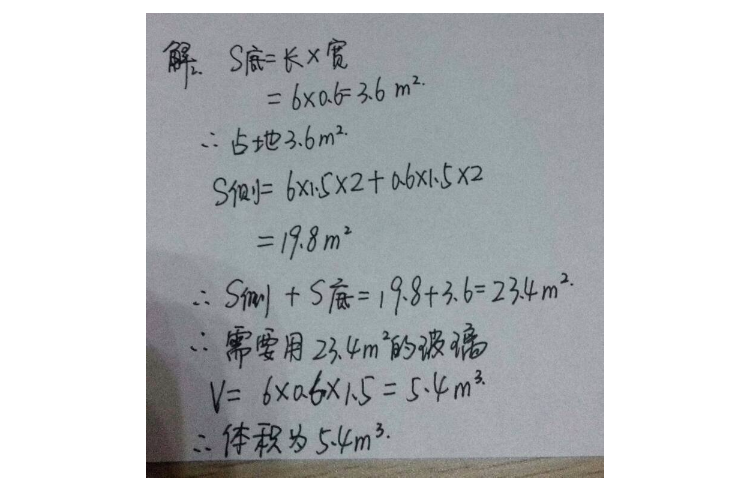 解: S底=长×宽
=6×0.6=3.6 m².
∴占地3.6m².
S侧=6×1.5×2+0.6×1.5×2
=19.8m²
∴S侧+S底=19.8+3.6=23.4m².
∴需要用23.4m²的玻璃
V=6×0.6×1.5=5.4m³.
∴体积为5.4m³.